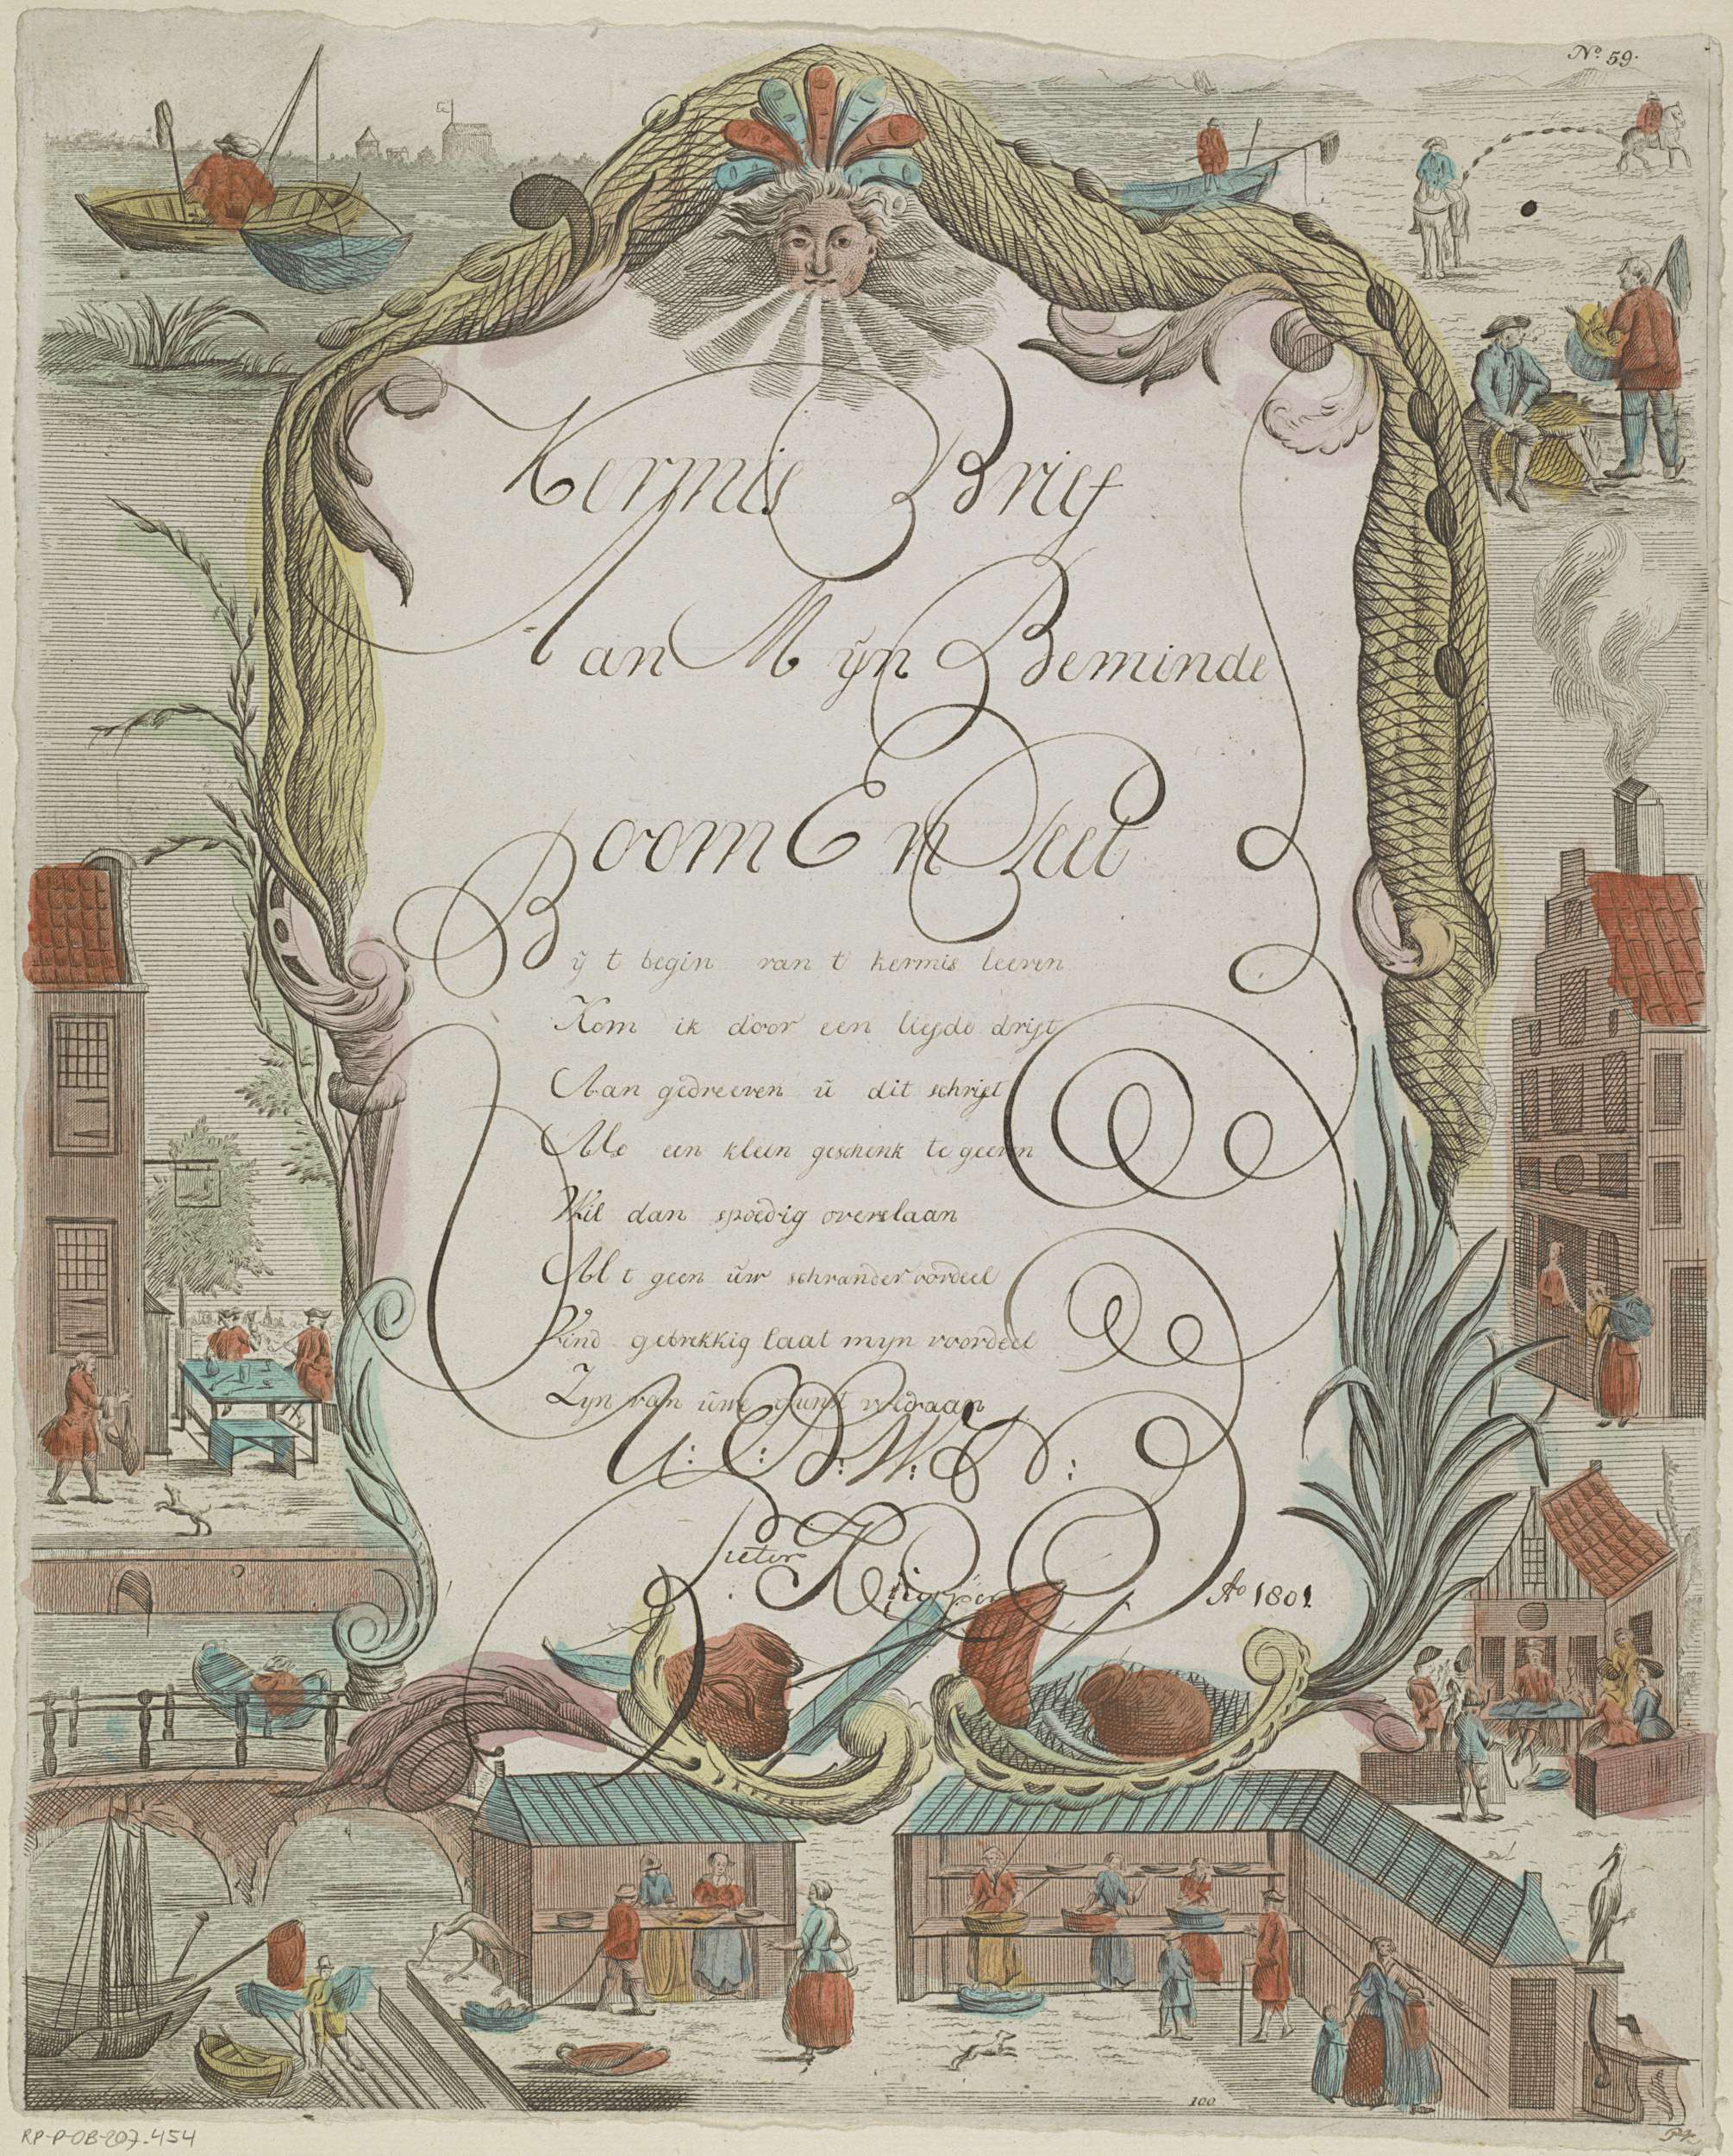 No. 59.
Kermis Brief
Aan Mÿn Beminde
Oom En
Bÿ t begin van t kermis leeven
Kom ik door een liefde drift
Aan gedreeven ü dit schrift
Als een klein geschenk te geeven
Wil dan spoedig overslaan
Al t geen üw schrander oordeel
Vind gebrekkig laat mÿn voordeel
Zÿn van üwe gunst voldaan
U: E: D: W: N:
Pieter
Ao 1801
100
RP-P-OB-207.454